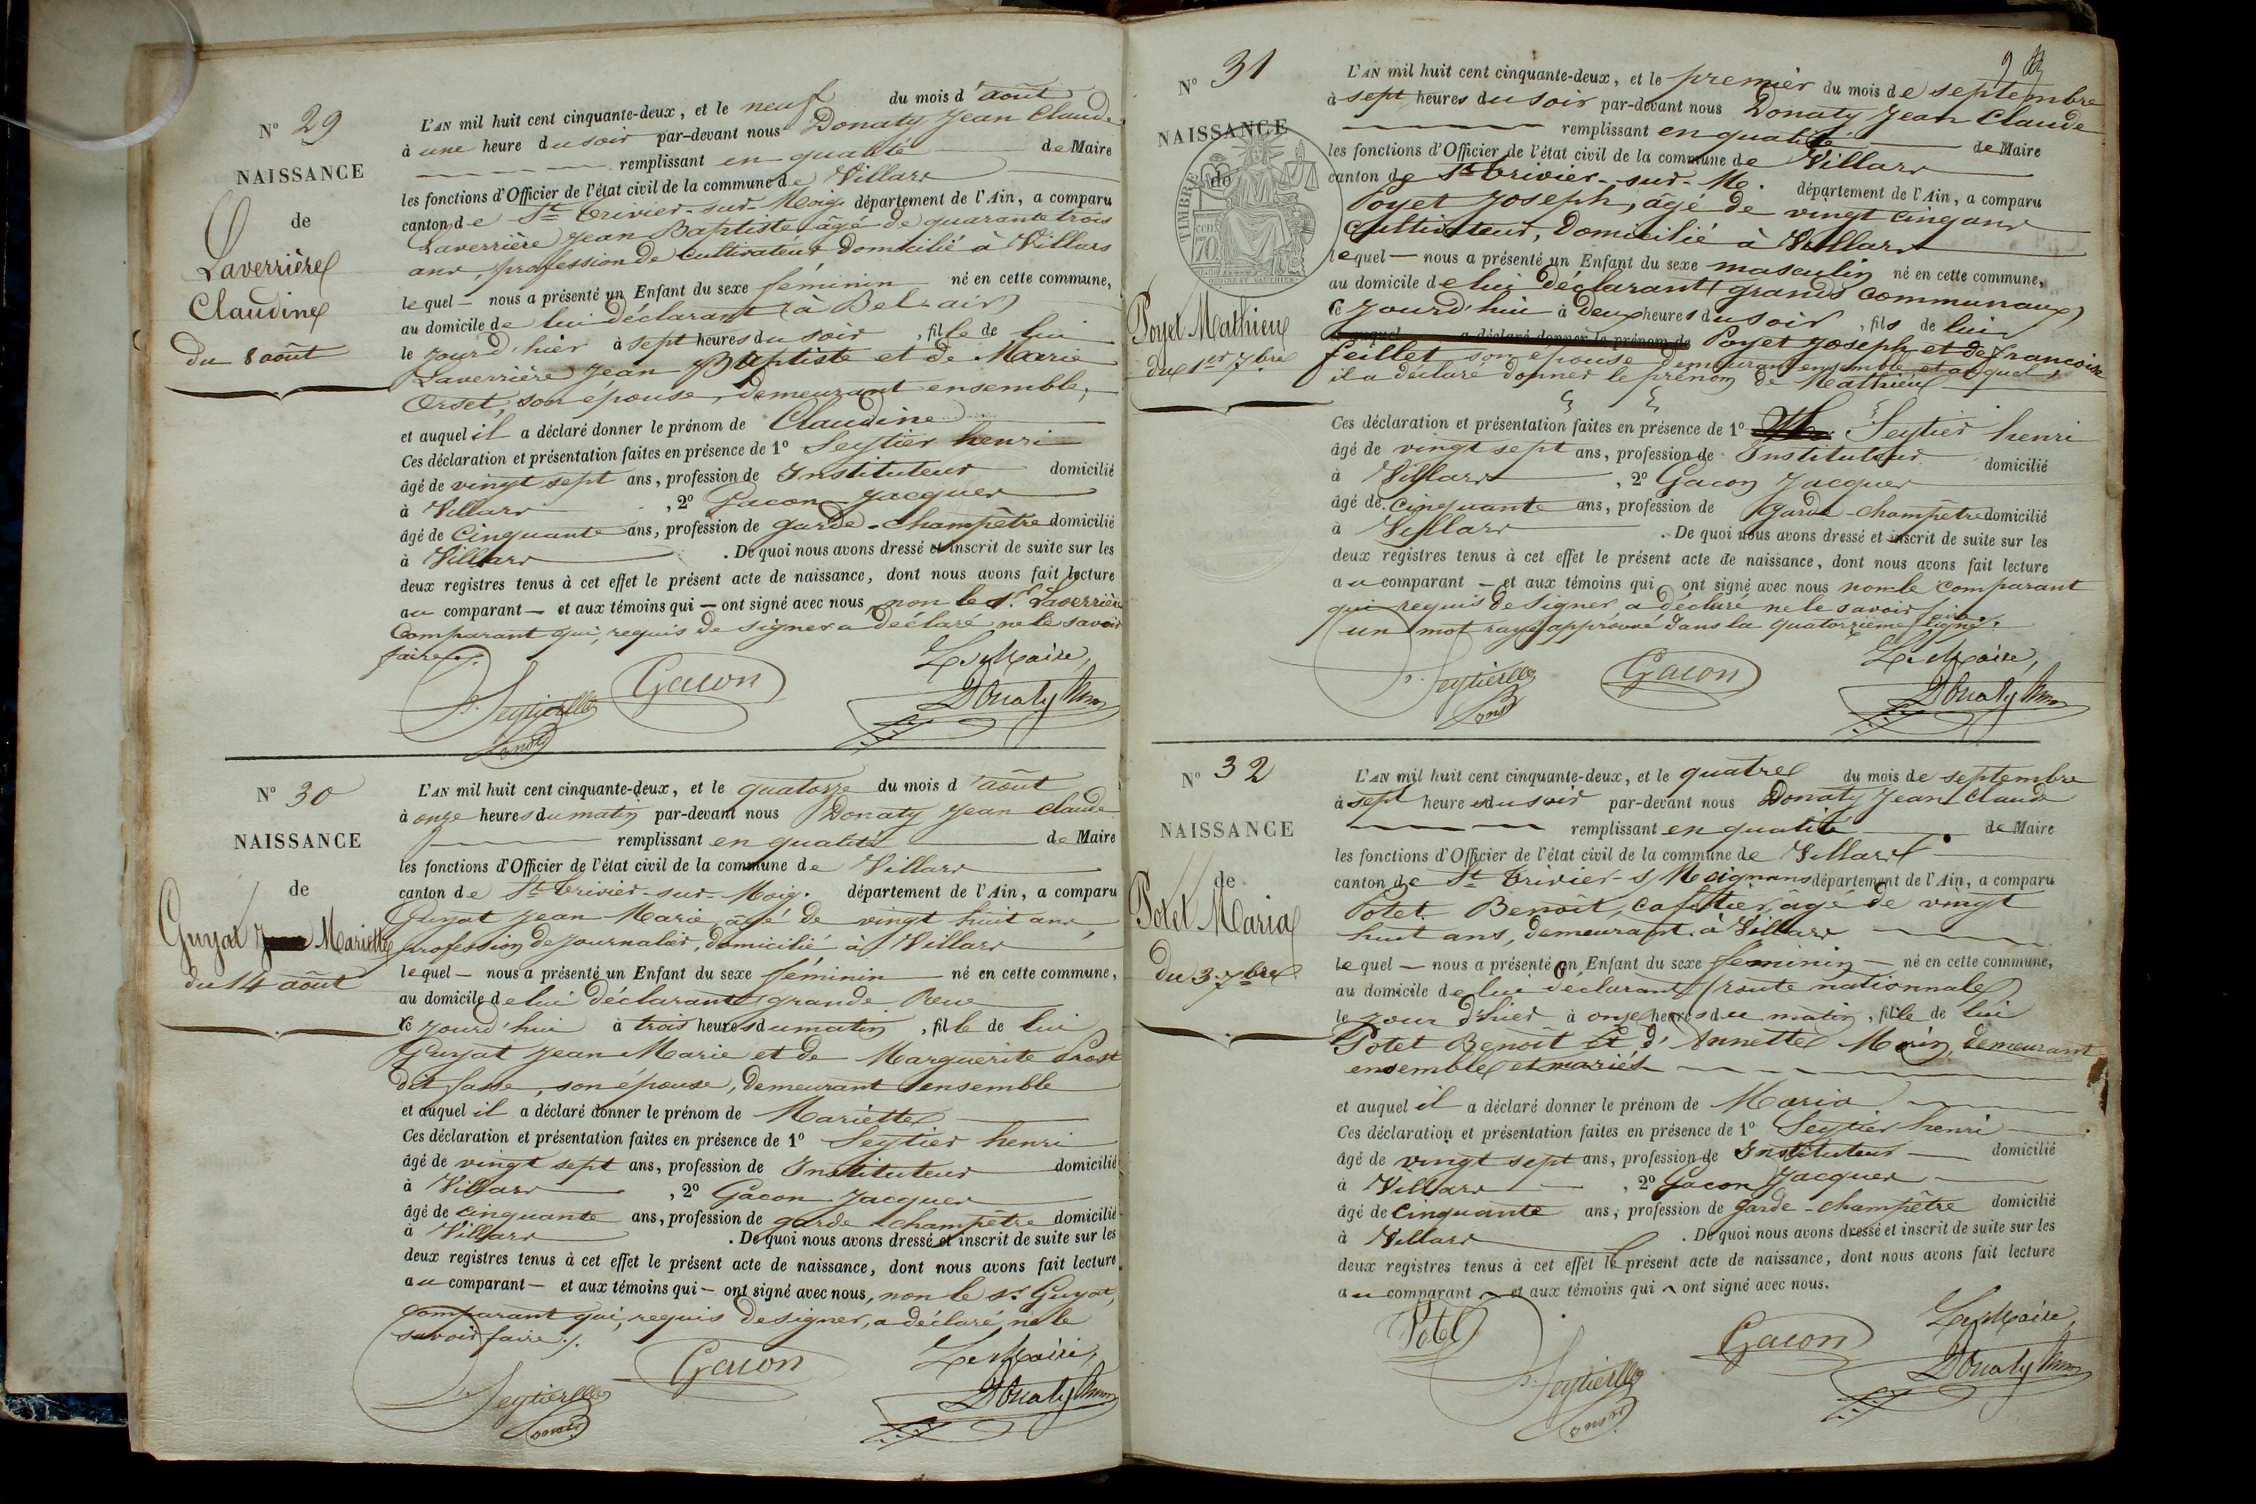 N° 29
NAISSANCE
de
Laverrière
Claudine
du 8 août
L'AN mil huit cent cinquante-deux, et le neuf du mois d'août
à une heure du soir par-devant nous Donaty Jean Claude
remplissant en qualité de Maire
les fonctions d'Officier de l'état civil de la commune de Villars
canton de St Trivier-sur-Moig. département de l'Ain, a comparu
Laverrière Jean Baptiste, âgé de quarante trois
ans, profession de Cultivateur domicilié à Villars
lequel — nous a présenté un Enfant du sexe féminin né en cette commune,
au domicile de lui déclarant (à Bel-air)
le jour d'hier à sept heures du soir, fille de lui
Laverrière Jean Baptiste et de Marie
Orset, son épouse, demeurant ensemble,
et auquel il a déclaré donner le prénom de Claudine
Ces déclaration et présentation faites en présence de 1° Seytier henri
âgé de vingt sept ans, profession de Instituteur domicilié
à Villars, 2° Gacon Jacques
âgé de Cinquante ans, profession de garde-champêtre domicilié
à Villars. De quoi nous avons dressé et inscrit de suite sur les
deux registres tenus à cet effet le présent acte de naissance, dont nous avons fait lecture
au comparant — et aux témoins qui — ont signé avec nous, non le sr Laverrière
Comparant qui, requis de signer a déclaré ne le savoir
faire.
Le Maire,
Seytier Gacon Donaty
N° 30
NAISSANCE
de
Guyat Mariette
du 14 août
L'AN mil huit cent cinquante-deux, et le quatorze du mois d'août
à onze heures du matin par-devant nous Donaty Jean Claude
remplissant en qualité de Maire
les fonctions d'Officier de l'état civil de la commune de Villars
canton de St Trivier-sur-Moig. département de l'Ain, a comparu
Guyat Jean Marie, âgé de vingt huit ans,
profession de Journalier, domicilié à Villars
lequel — nous a présenté un Enfant du sexe féminin né en cette commune,
au domicile de lui déclarant grande Rue
ce jourd'hui à trois heures du matin, fille de lui
Guyat Jean Marie et de Marguerite Prost
dit, son épouse, demeurant ensemble
et auquel il a déclaré donner le prénom de Mariette
Ces déclaration et présentation faites en présence de 1° Seytier henri
âgé de vingt sept ans, profession de Instituteur domicilié
à Villars, 2° Gacon Jacques
âgé de cinquante ans, profession de garde-champêtre domicilié
à Villars. De quoi nous avons dressé et inscrit de suite sur les
deux registres tenus à cet effet le présent acte de naissance, dont nous avons fait lecture
au comparant — et aux témoins qui — ont signé avec nous, non le sr Guyat,
Comparant qui, requis de signer, a déclaré ne le
savoir faire.
Le Maire,
Seytier Gacon Donaty
N° 31
NAISSANCE
de
Poyet Mathieu
du 1er 7bre
L'AN mil huit cent cinquante-deux, et le premier du mois de septembre
à sept heures du soir par-devant nous Donaty Jean Claude
remplissant en qualité de Maire
les fonctions d'Officier de l'état civil de la commune de Villars
canton de St Trivier-sur-Mo. département de l'Ain, a comparu
Poyet Joseph, âgé de vingt cinq ans
Cultivateur, Domicilié à Villars
lequel — nous a présenté un Enfant du sexe masculin né en cette commune,
au domicile de lui déclarant (grands Communaux)
ce jourd'hui à Deux heures du soir, fils de lui
Poyet Joseph et de Françoise
feillet son épouse demeurant ensemble et auquel
il a déclaré donner le prénom de Mathieu
Ces déclaration et présentation faites en présence de 1° Seytier henri
âgé de vingt sept ans, profession de Instituteur domicilié
à Villars, 2° Gacon Jacques
âgé de cinquante ans, profession de Garde-champêtre domicilié
à Villars. De quoi nous avons dressé et inscrit de suite sur les
deux registres tenus à cet effet le présent acte de naissance, dont nous avons fait lecture
au comparant — et aux témoins qui ont signé avec nous non le comparant
qui requis de signer a déclaré ne le savoir faire.
un mot rayé approuvé dans la quatorzième ligne.
Le Maire,
Seytier Gacon Donaty
N° 32
NAISSANCE
de
Potet Maria
du 3 7bre
L'AN mil huit cent cinquante-deux, et le quatre du mois de septembre
à sept heures du soir par-devant nous Donaty Jean Claude
remplissant en qualité de Maire
les fonctions d'Officier de l'état civil de la commune de Villars
canton de St Trivier-s/ Moignans département de l'Ain, a comparu
Potet Benoît, cafetier, âgé de vingt
huit ans, demeurant à Villars
lequel — nous a présenté un Enfant du sexe féminin — né en cette commune,
au domicile de lui déclarant (route nationnale)
le jour d'hier à onze heures du matin, fille de lui
Potet Benoît Et d'Annette Morin, demeurant
ensemble et mariés
et auquel il a déclaré donner le prénom de Maria
Ces déclaration et présentation faites en présence de 1° Seytier henri
âgé de vingt sept ans, profession de Instituteur domicilié
à Villars, 2° Gacon Jacques
âgé de Cinquante ans, profession de Garde-champêtre domicilié
à Villars. De quoi nous avons dressé et inscrit de suite sur les
deux registres tenus à cet effet le présent acte de naissance, dont nous avons fait lecture
au comparant et aux témoins qui ont signé avec nous.
Le Maire,
Potet Seytier Gacon Donaty